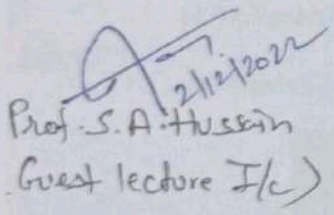 2/12/2022
Prof. S. A. Hussain
(Guest lecture I/c)